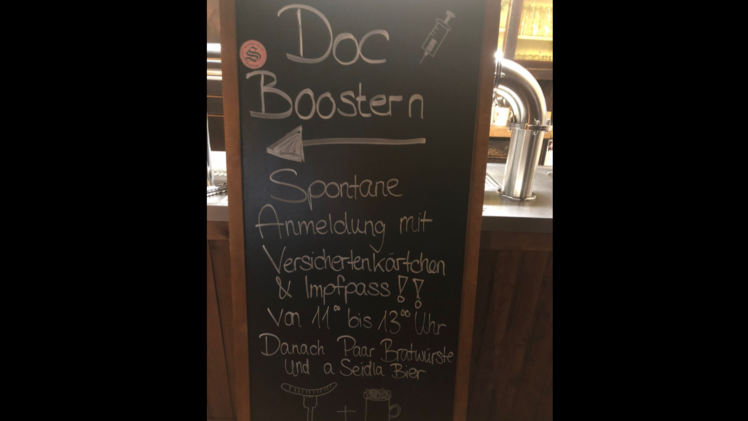 Doc
S
Boostern
Spontane
Anmeldung mit
Versichertenkärtchen
& Impfpass!!
Von 11°° bis 13°° Uhr
Danach Paar Bratwürste
Und a Seidla Bier
+